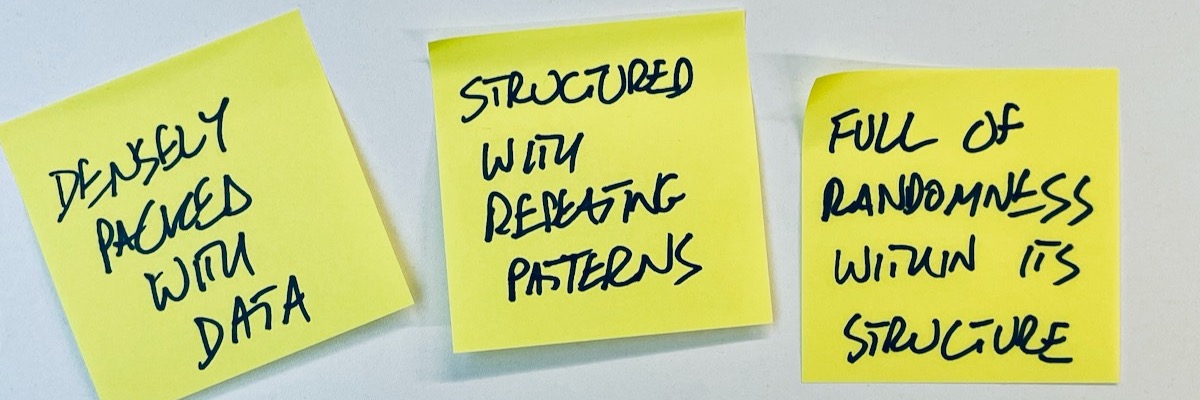 DENSELY
PACKED
WITH
DATA
STRUCTURED
WITH
REPEATING
PATTERNS
FULL OF
RANDOMNESS
WITHIN ITS
STRUCTURE